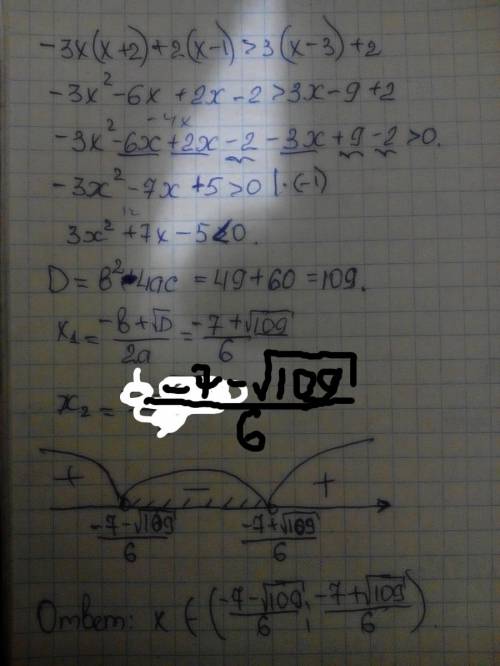 -3x(x+2)+2(x-1)>3(x-3)+2
-3x²-6x+2x-2>3x-9+2
-4x
-3x²-6x+2x-2-3x+9-2>0.
-3x²-7x+5>0 |·(-1)
3x²+7x-5<0.
D=b²-4ac=49+60=109.
x₁=(-b+√D)/2a=(-7+√109)/6
x₂=(-7-√109)/6
+ - +
(-7-√109)/6 (-7+√109)/6
Ответ: x ∈ ((-7-√109)/6; (-7+√109)/6).